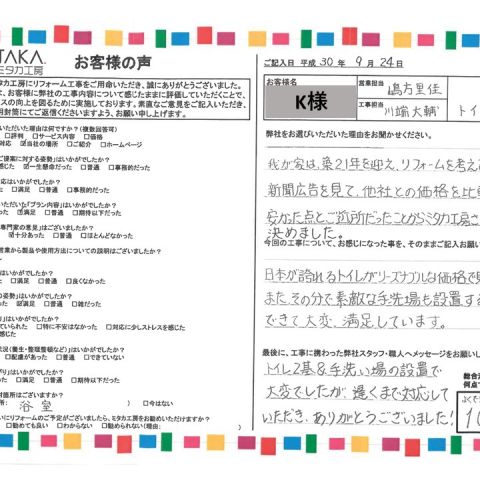 TAKA
ミタカ工房
お客様の声
タカ工房にリフォーム工事をご用命いただき、誠にありがとうございました。
、お客様に弊社工事内容について感じたままに評価していただくことで、
スの向上を図るために実施しております。率直なご意見をご記入いただき、
用封筒にてご返信くださいますよう、お願い申し上げます。
いただいた理由は何ですか?(複数回答可)
□評判 □サービス内容 □価格
対応 ☑当社の場所 □ご紹介 □ホームページ
ご提案に対する姿勢はいかがでしたか?
感じた ☑一生懸命だった □普通 □事務的だった
応はいかがでしたか?
った □満足 □普通 □事務的だった
いただいた「プラン内容」はいかがでしたか?
った ☑満足 □普通 □期待以下だった
専門家の意見」はございましたか?
☑十分あった □普通 □ほとんどなかった
営業から製品や使用方法についての説明はございましたか?
はいかがでしたか?
った □満足 □普通 □良くなかった
の姿勢」はいかがでしたか?
った □満足 □普通 □雑だった
」はいかがでしたか?
ていられた □特に不安はなかった □対応に少しストレスを感じた
感じた
状況(養生・整理整頓など)はいかがでしたか?
□配慮があった □普通 □できていない
がり」はいかがでしたか?
った □満足 □普通 □期待以下だった
対箇所はございますか?
所 浴室 ) □今はない
いにリフォームのご予定がございましたら、ミタカ工房をお勧めいただけますか?
□勧めても良い □わからない □勧められない(理由: )
ご記入日 平成 30 年 9 月 24 日
お客様名
K様
営業担当
嶋方里佳
工事担当
川端大輔
トイ
弊社をお選びいただいた理由をお聞かせください。
我が家は、築21年を迎え、リフォームを考え
新聞広告を見て、他社との価格を比
安かった点とご近所だったことからミタカ工房さ
決めました。
今回の工事について、お感じになった事を、そのままご記入お願い
日本が誇れるトイレがリーズナブルな価格で
また その分で素敵な手洗場も設置する
できて大変、満足しています。
最後に、工事に携わった弊社スタッフ・職人へメッセージをお願いし
トイレ2基&手洗い場の設置で
大変でしたが、遅くまで対応して
いただき、ありがとうございました!
総合
何点で